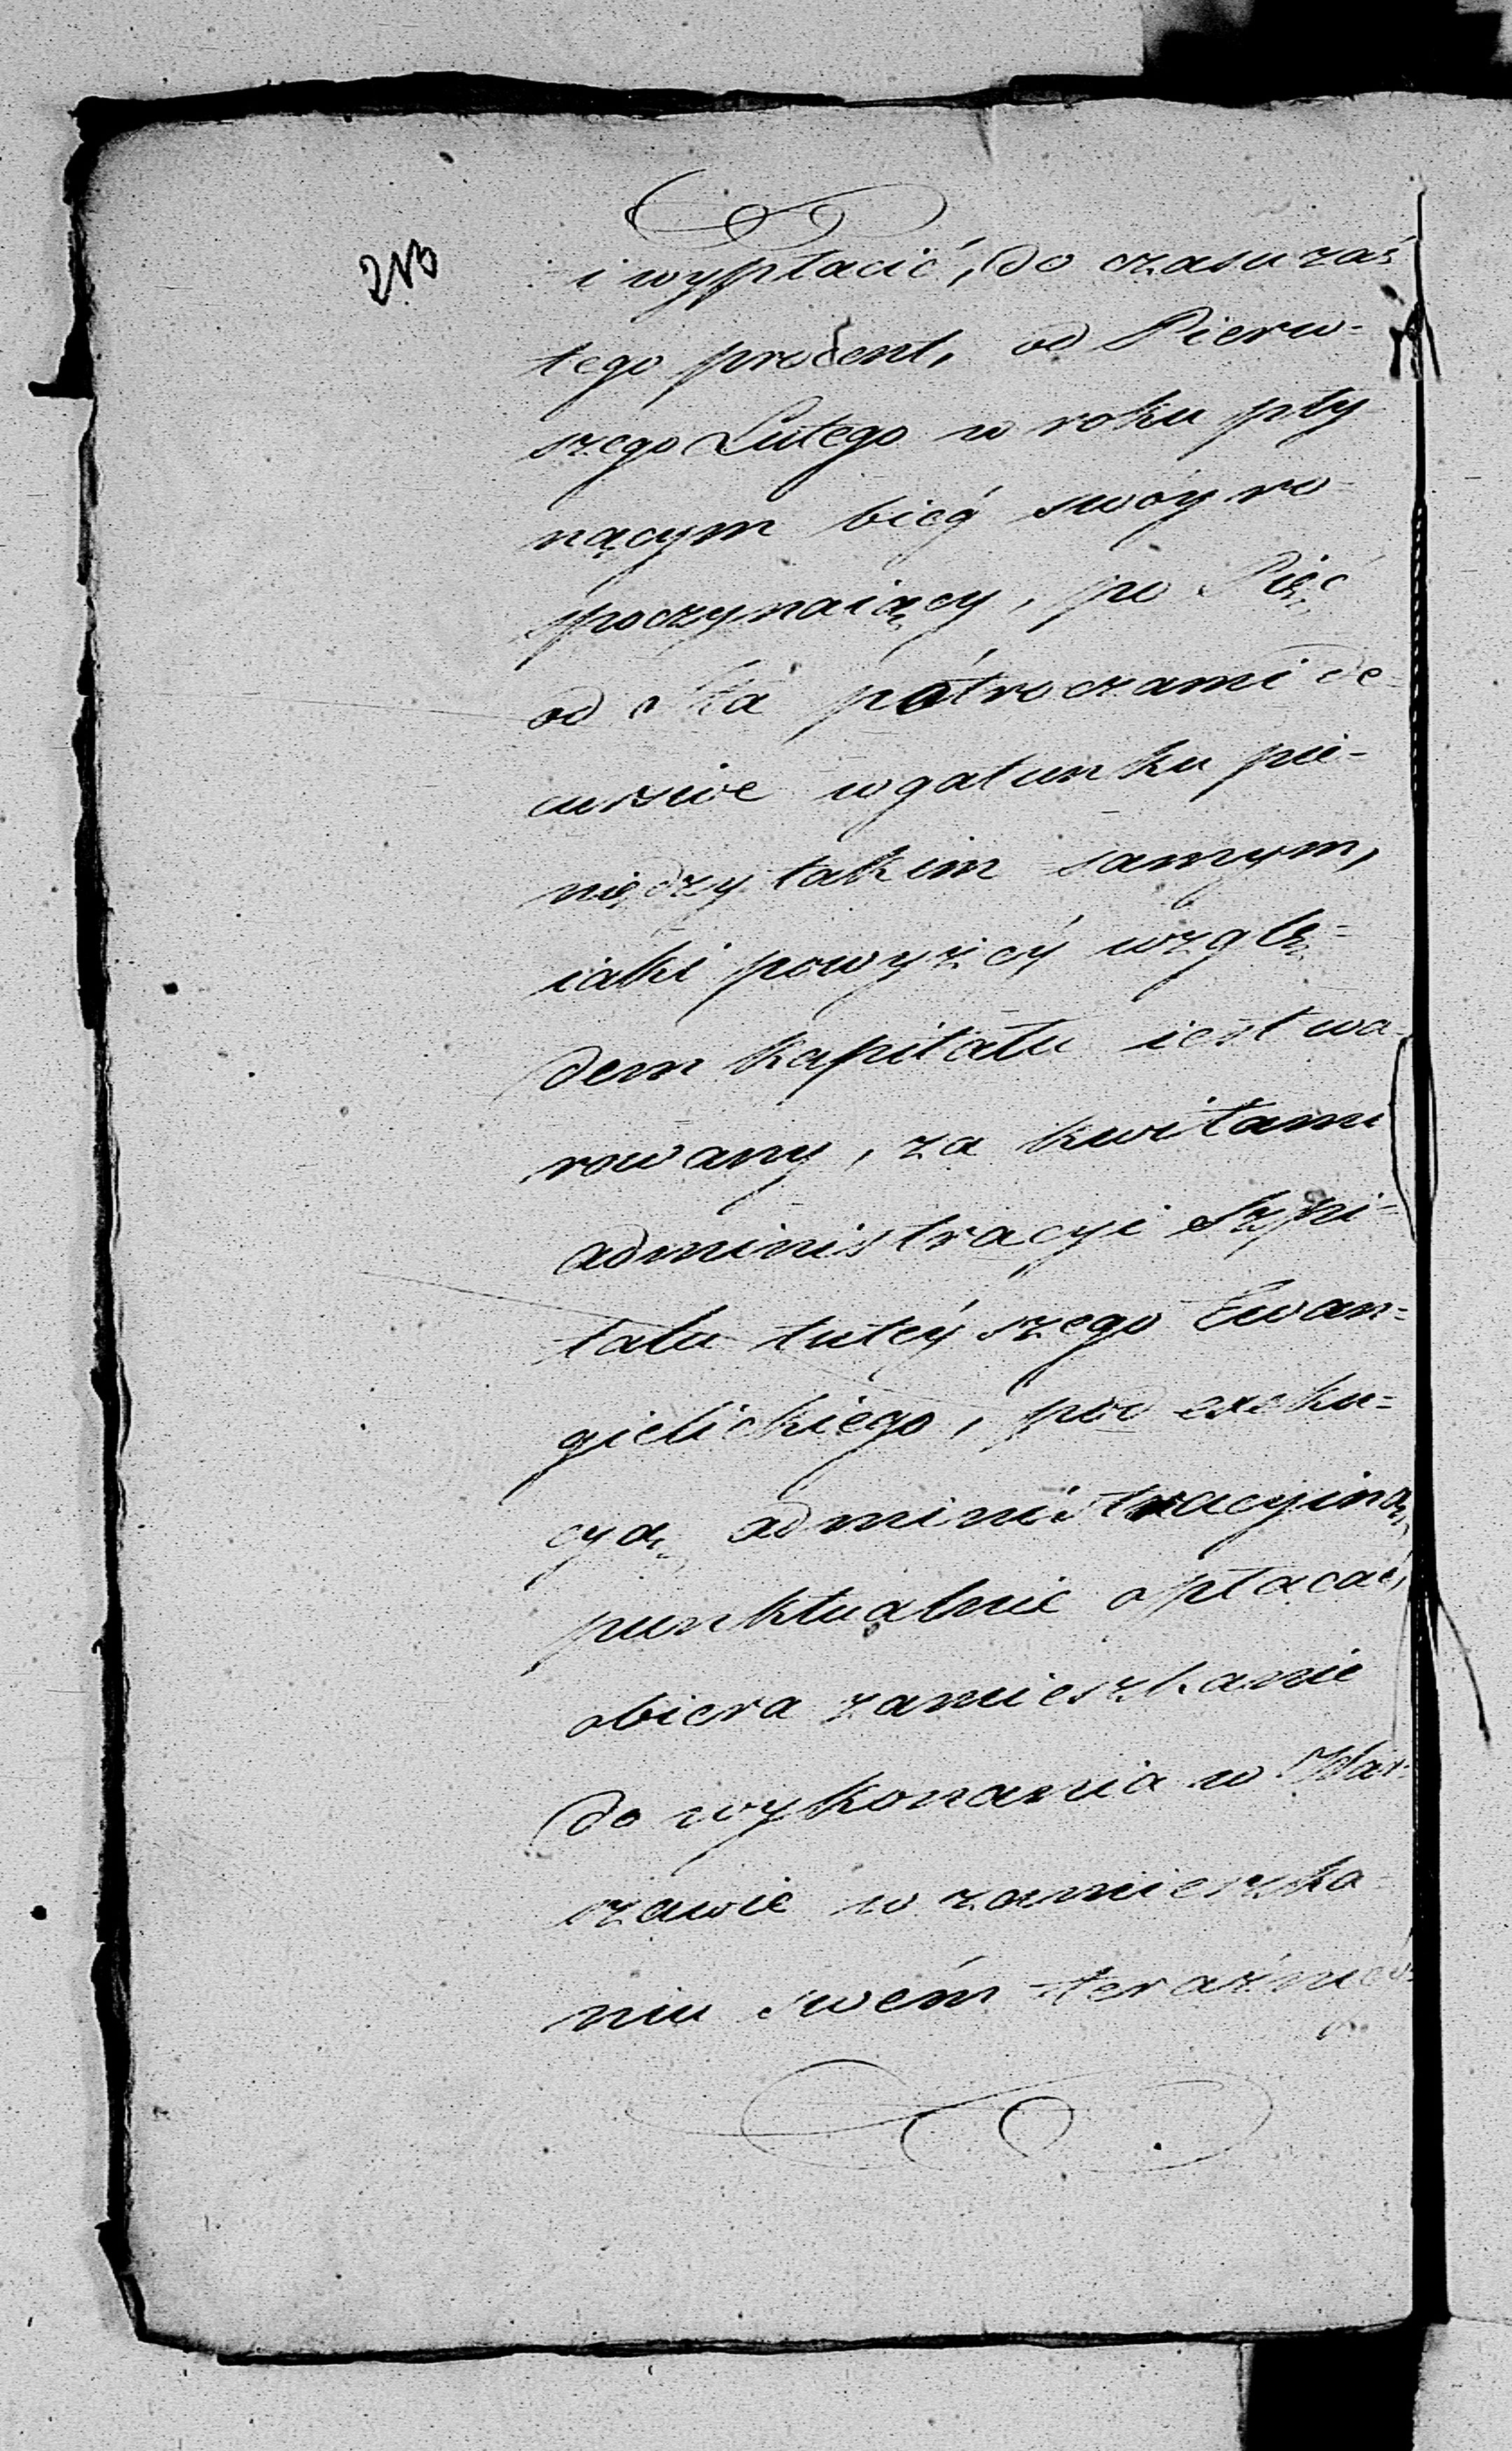 i wypłacić, do czasu zaś
tego procent, od Pierw-
szego Lutego w roku pły
nącym bieg swóy ro
spoczynaiący, po Pięć
od sta półroczami de-
cursive w gatunku pie-
niędzy takim samym,
iaki powyżéy wzglę=
dem kapitału iest wa-
rowany, za kwitami
administracyi Szpi-
talu tutéyszego Ewan=
gielickiego, pod exeku=
cyą administracyiną
punktualnie opłacać,
obiera zamieszkanie
do wykonania w War-
szawie w zamieszka-
niu swém teraźniey-